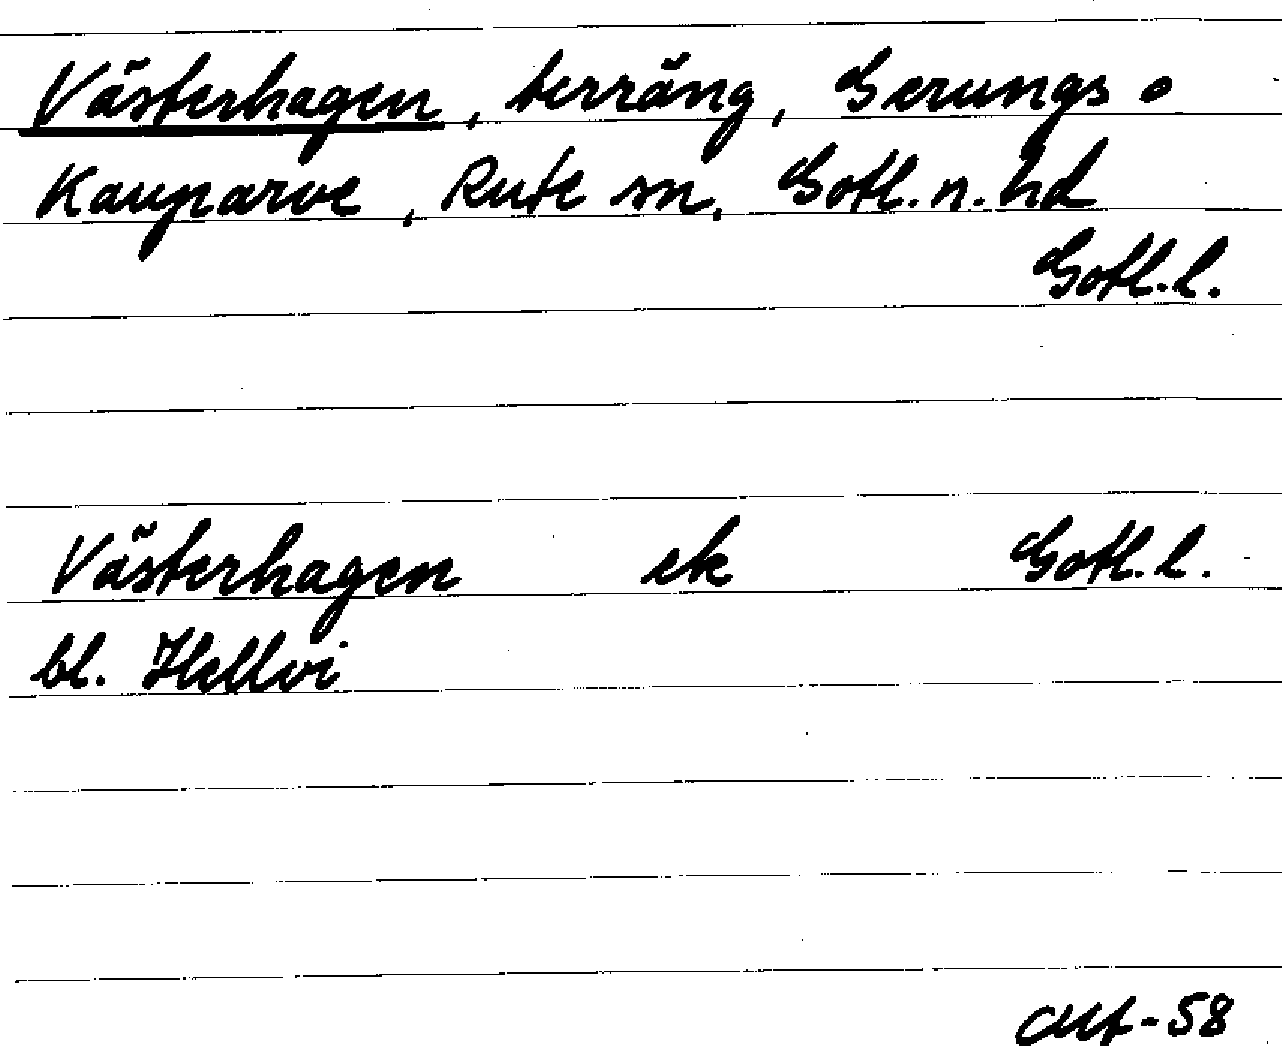 Västerhagen, terräng, Gerungs o
Kauparve, Rute sn, Gotl. n. hd
Gotl. l.
Västerhagen ek Gotl. l.
bl. Hellvi
-58